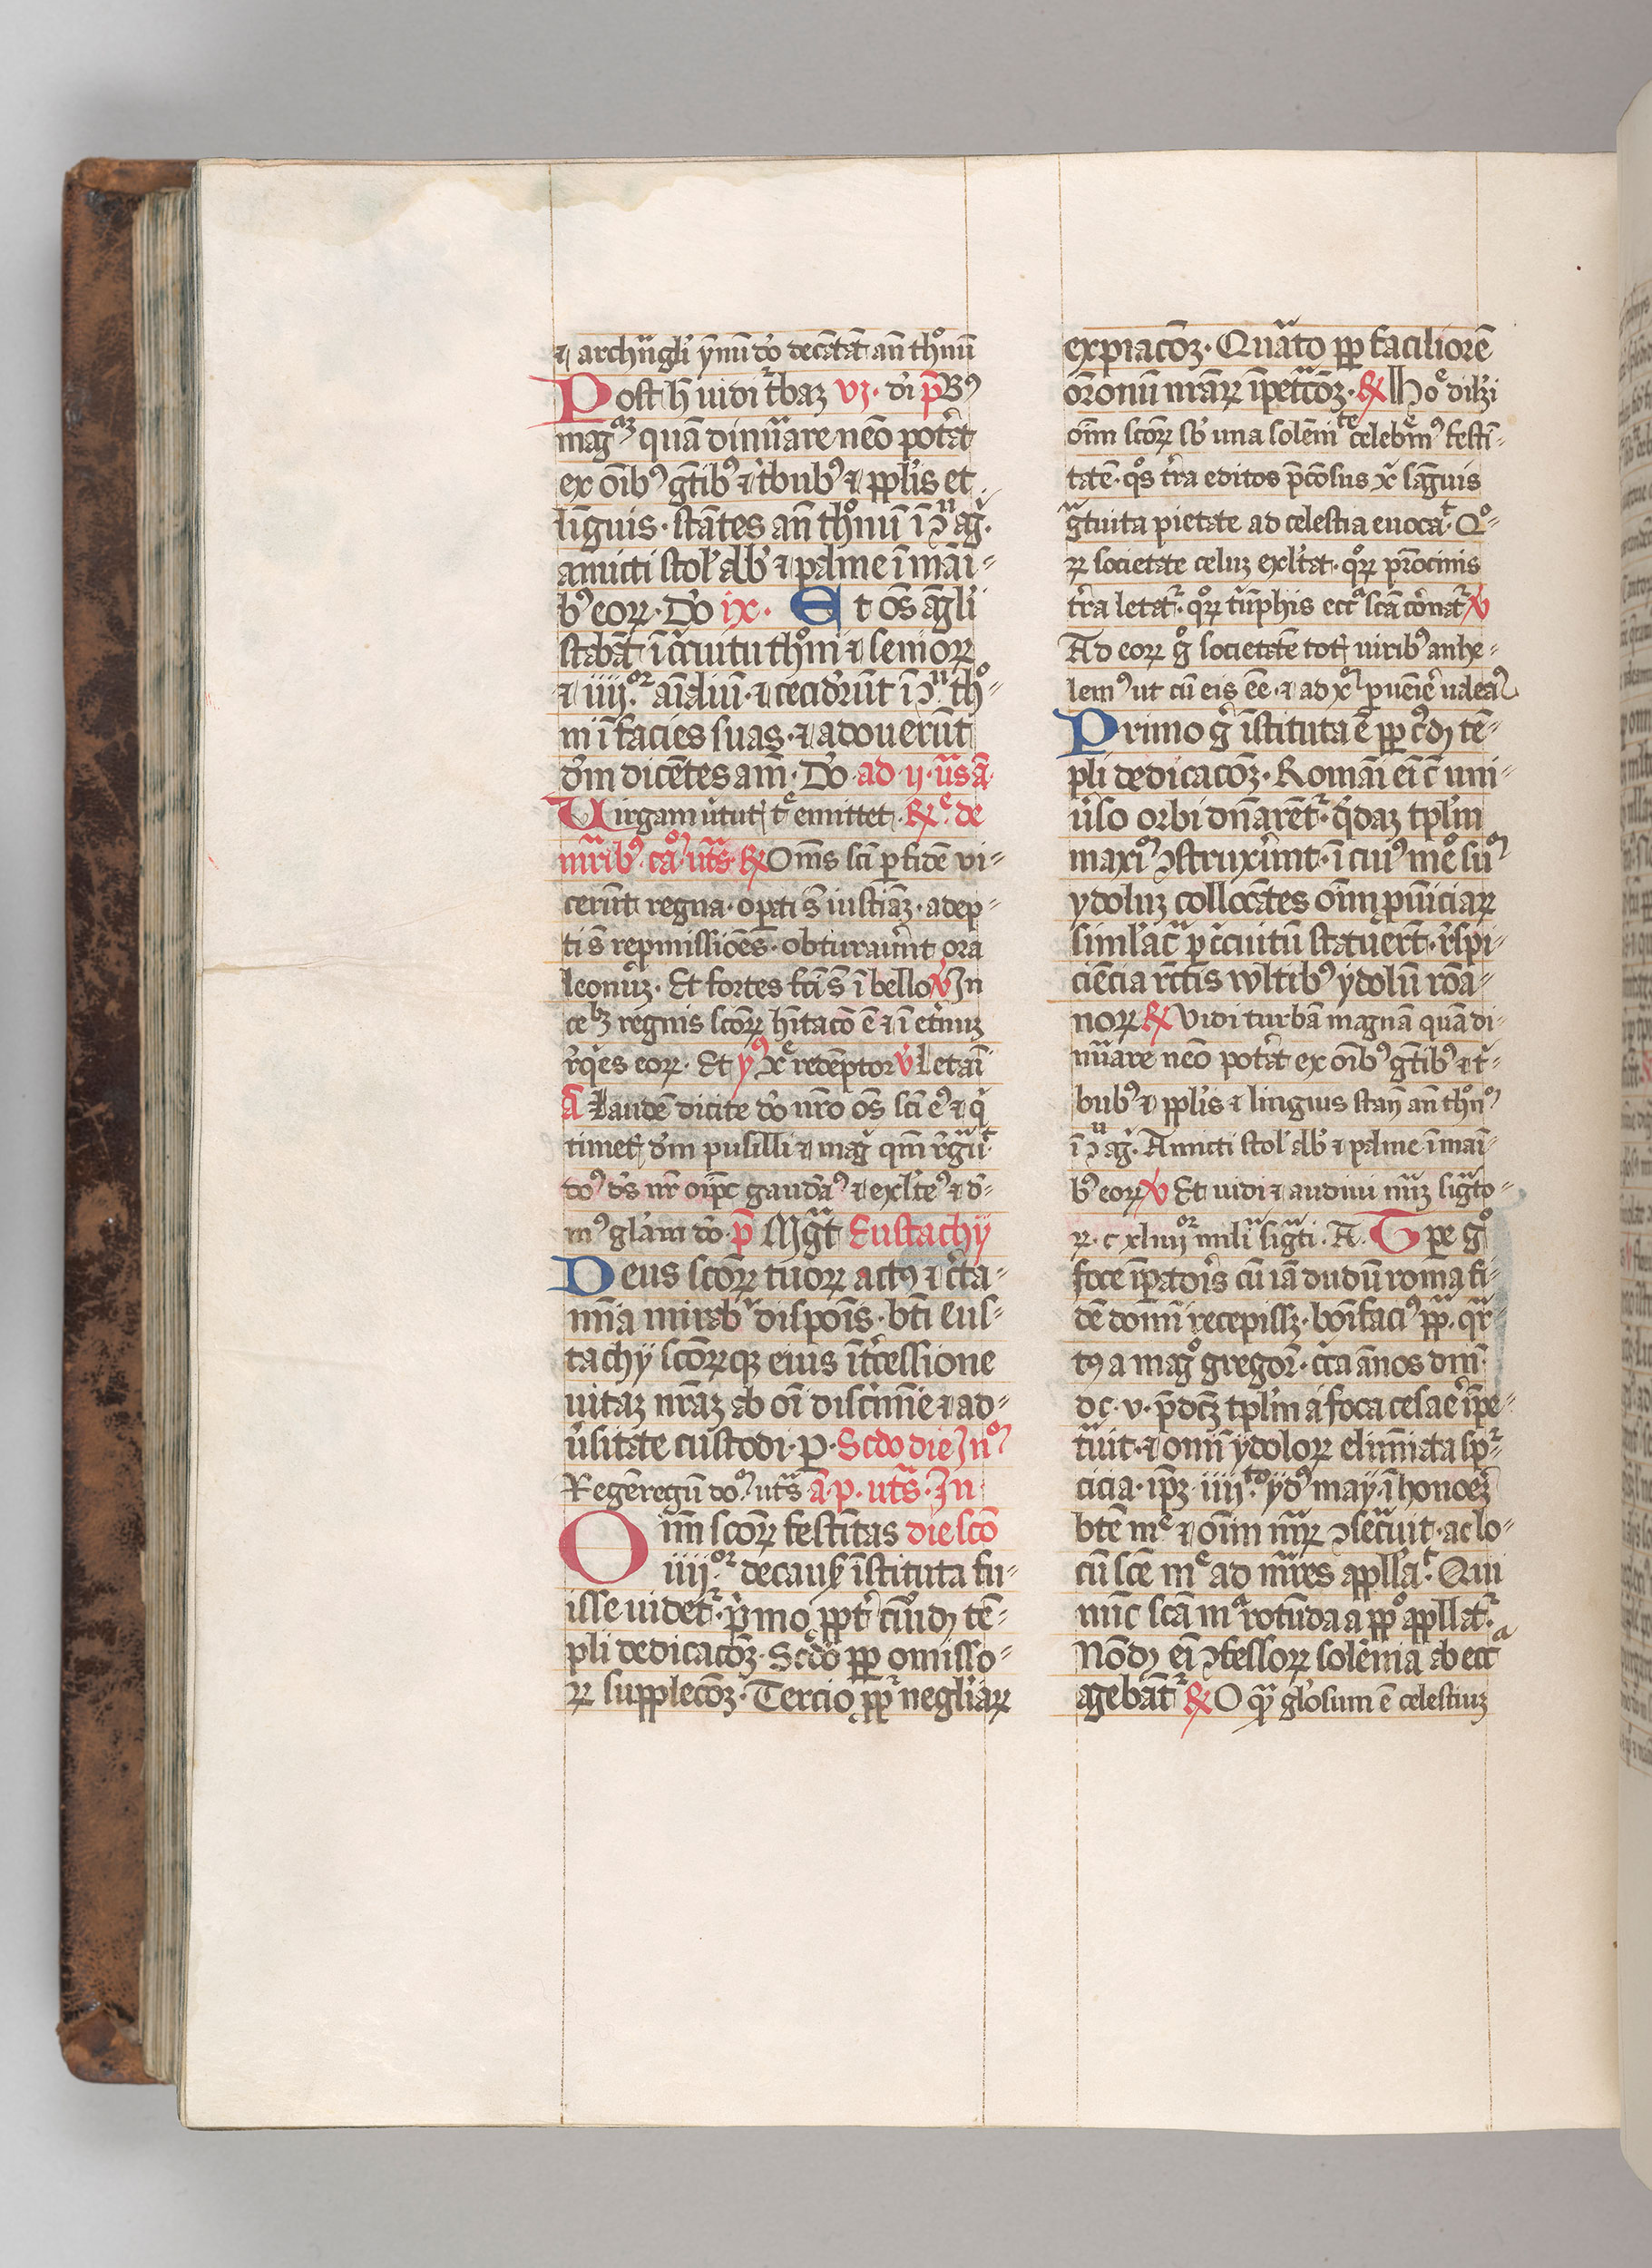 ⁊ archāgl'i ymnū dō decātāt añ thͦnū
Post h̄ uidi tͬbaꝫ vi. di p̄ Bꝰ
magᵃꝫ quā dinūare nēo potat
ex oībꝰ gn̄tibꝰ ⁊ tͥbubꝰ ⁊ ppl'is et
līguis. stātes añ thͦnū ī ɔͧ agͥ.
amicti stol' alb' ⁊ palme ī māi-
bꝰ eoꝝ. Dō ix. Et ōs āgl'i
stabāt ī cͥcuitu thͦni ⁊ senioꝝ
⁊ iiij.ͦͬ aīaliū. ⁊ ceciderūt ī ɔͧ thͦ-
ni ī facies suas. ⁊ adoūerūt
dm̄ dicētes am̄. Dō ad ij. uͣs ā.
Virgam ūtut̄ tͤ emittet. ℞ͤ. de
mr̄ibꝰ. cāꝰ. utͣ ℞ Om̄s sci ꝑ fidē vi-
cerūt regna. opati s̄ iustiāꝫ. adep-
ti s̄ repmissiōes. obturauer̄t ora
leonūꝫ. Et fortes fc̄i s̄ ī bello ℣ In
ceˡꝫ regnis scōꝝ hītacō ē ⁊ ī etnuꝫ
rͤqͥes eoꝝ. Et yꝰ xͤ redēptor ℣ Letaī
A Laudē dicite dō nrō ōs sci eꝰ ⁊ qͥ
timet̄ dm̄ pusilli ⁊ magͥ qm̄ rͤgūͭ
doꝰ ds̄ nr̄ oīpc̄ gaudeāꝰ ⁊ exl'teꝰ ⁊ d-
mꝰ gl'am dō. p̄ Mgāt Eustachij
Deus scōꝝ tuoꝝ actꝰ ⁊ cͤta-
mīa mirabͬ dispōis. bt̄i eus-
tachij scōꝝqꝫ eius ītͤcessione
uitaꝫ nrāꝫ ab oī discͥmīe ⁊ ad-
ūsitate custodi. P. Scdo die Inͦꝰ
Regē regū doꝰ. utͣ ā. p. utͣ. In
Oīm scōꝝ festītas die scō
iiij.ͦͬ de cauẜ īstituta fu-
isse uidetͬ. pͥmo ppt̄ cuiꝰdꝫ tē-
pli dedicacōꝫ. Scdō pp̄ omisso-
ꝝ supplecōꝫ. Tercio pp̄ negl'iaꝝ
expiacōꝫ. Quāto pp̄ faciliorē
orōnū nrāꝝ īpetͣcōꝫ. ℞ Hoͤ dil'ci
oīm scōꝝ sb' una solēniᵗᵉ celebͤmꝰ festī-
tatē. qͦs trͤa editos p̄cōsus xͥ sāguis
gͣtuita pietate ad celestia euocaͭ. Qͦ-
ꝝ societate celuꝫ exl'tat. qͦꝝ pr̄ocinis
trͤa letatͬ. qͦꝝ tͥūphis ecͣ scā cōnatͬ ℣
Ad eoꝝ gͦ societatē tot̄ uiribꝰ anhe-
lemꝰ ut cū eis ēe. ⁊ ad xͫ puenīre ualeaꝰ
Primo gͦ īstituta ē pp̄ cͥdꝫ tē-
pli dedicacōꝫ. Romāi ei c̄ uni-
ūso orbi dn̄arētͬ. qͦdaꝫ tpl'm
maxiꝰ ɔstruxer̄t. ī cuiꝰ mͦ suꝰ
ydoluꝫ collocātes oīm puīciaꝝ
siml'acͣ p cͥcuitū statuert̄. rͤspi-
ciēcia rc̄tis wltibꝰ ydolū romā-
noꝝ ℞ Vidi turbā magnā quā di-
nūare nēo potat ex oībꝰ gn̄tibꝰ ⁊ tͥ-
bubꝰ ⁊ ppl'is ⁊ linguis stan̄ añ thͦnꝰ
ī ɔͧ agͥ. Amicti stol' alb' ⁊ palme ī maī-
bꝰ eoꝝ ℣ Et uidi ⁊ audiui nūꝫ sigͣto-
ꝝ. c xliiijͦͬ miliͣ sigͣti. A. Tpe gͦ
foce īpatoris cū iā dudū roma fi-
dē domī recepissꝫ. bonifaciꝰ pp̄. qͬ-
tꝰ a magͦ gregorͦ. cͥca ānos dm̄.
dc. v. p̄dcꝫ tpl'm a foca cesaͤ īpe-
tͣuit. ⁊ om̄i ydoloꝝ elimīata spͬ-
cicia. ipꝫ iiij.ͭͦ ydꝰ may. ī honoeꝫ
btē mͤ ⁊ oīm mr̄ꝝ ɔsecͣuit. ac lo-
cū scē mͤ ad mr̄es appllaͭ. Qui
nūc scā mͣ rotūda a ppͦ appllatͬ.
Nōdꝫ ei ɔfessoꝝ solēnia ab eccͣ
agebāt̄ͬ ℞ O qͣ gl'osum ē celestiuꝫ